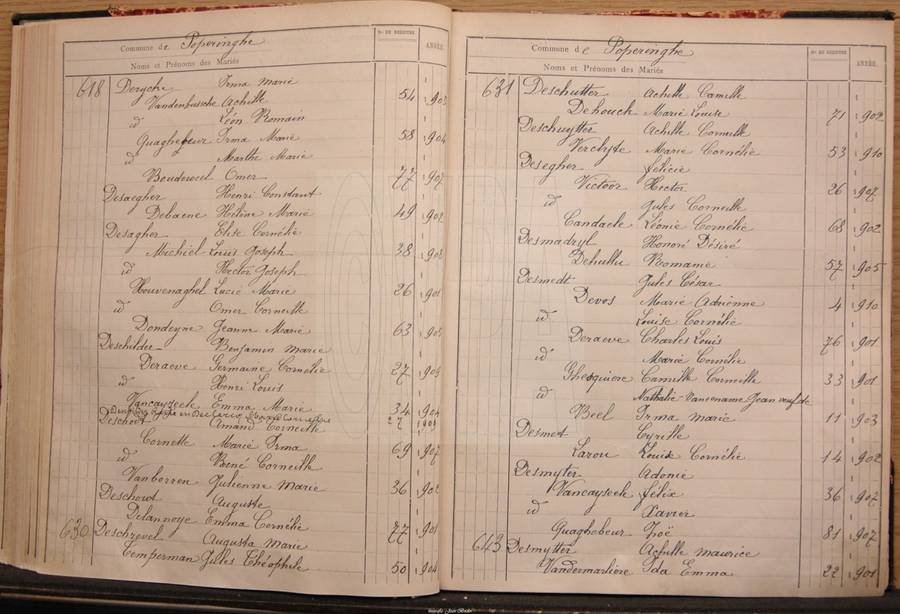 Commune de Poperinghe
Noms et Prénoms des Mariés
Nº DU REGISTRE
ANNÉE
618 Deryche Irma Marie
Vandenbussche Achille 54 1903
id Léon Romain
Quaghebeur Irma Marie 58 1904
id Marthe Marie
Bouderweel Omer 77 1907
Desaegher Henri Constant
Debaene Hélène Marie 49 1902
Desagher Elise Cornélie
Michiel Louis Joseph 38
id Hector Joseph
Houvenaghel Lucie Marie 26 1901
id Omer Corneille
Dondeyne Jeanne Marie 63
Deschilder Benjamin Marie
Deraeve Germaine Cornélie 27 1909
id Henri Louis
Vancayseele Emma Marie 34 1904
Deschoot Amand Corneille
Cornette Marie Irma 69 1907
id René Corneille
Vanberren Julienne Marie 36 1902
Deschout Auguste
Delannoye Emma Cornélie 77 1901
630 Deschrevel Augusta Marie
Temperman Gilles Théophile 50 1904
Commune de Poperinghe
Noms et Prénoms des Mariés
Nº DU REGISTRE
ANNÉE
631 Deschutter Achille Camille
Dehouck Marie Louise 71 1902
Deschuytter Achille Corneille
Verclyte Marie Cornélie 53 1910
Desegher Félicie
Victoor Hector 26 1907
id Jules Corneille
Candaele Léonie Cornélie 68 1902
Desmadryl Honoré Désiré
Dehullu Romanie 57 1905
Desmedt Jules César
Devos Marie Adrienne 4 1910
id Louise Cornélie
Deraeve Charles Louis 76 1901
id Marie Cornélie
Ghesquiere Camille Corneille 33 1901
id Nathalie Vaneenaeme Jean veuf de
Beel Irma Marie 11 1903
Desmet Cyrille
Larou Louise Cornélie 14 1902
Desmyter Adonie
Vancayseele Félix 36 1902
id Xavier
Quaghebeur Zoë 81 1907
643 Desmytter Achille Maurice
Vandermarlière Ida Emma 22 1901